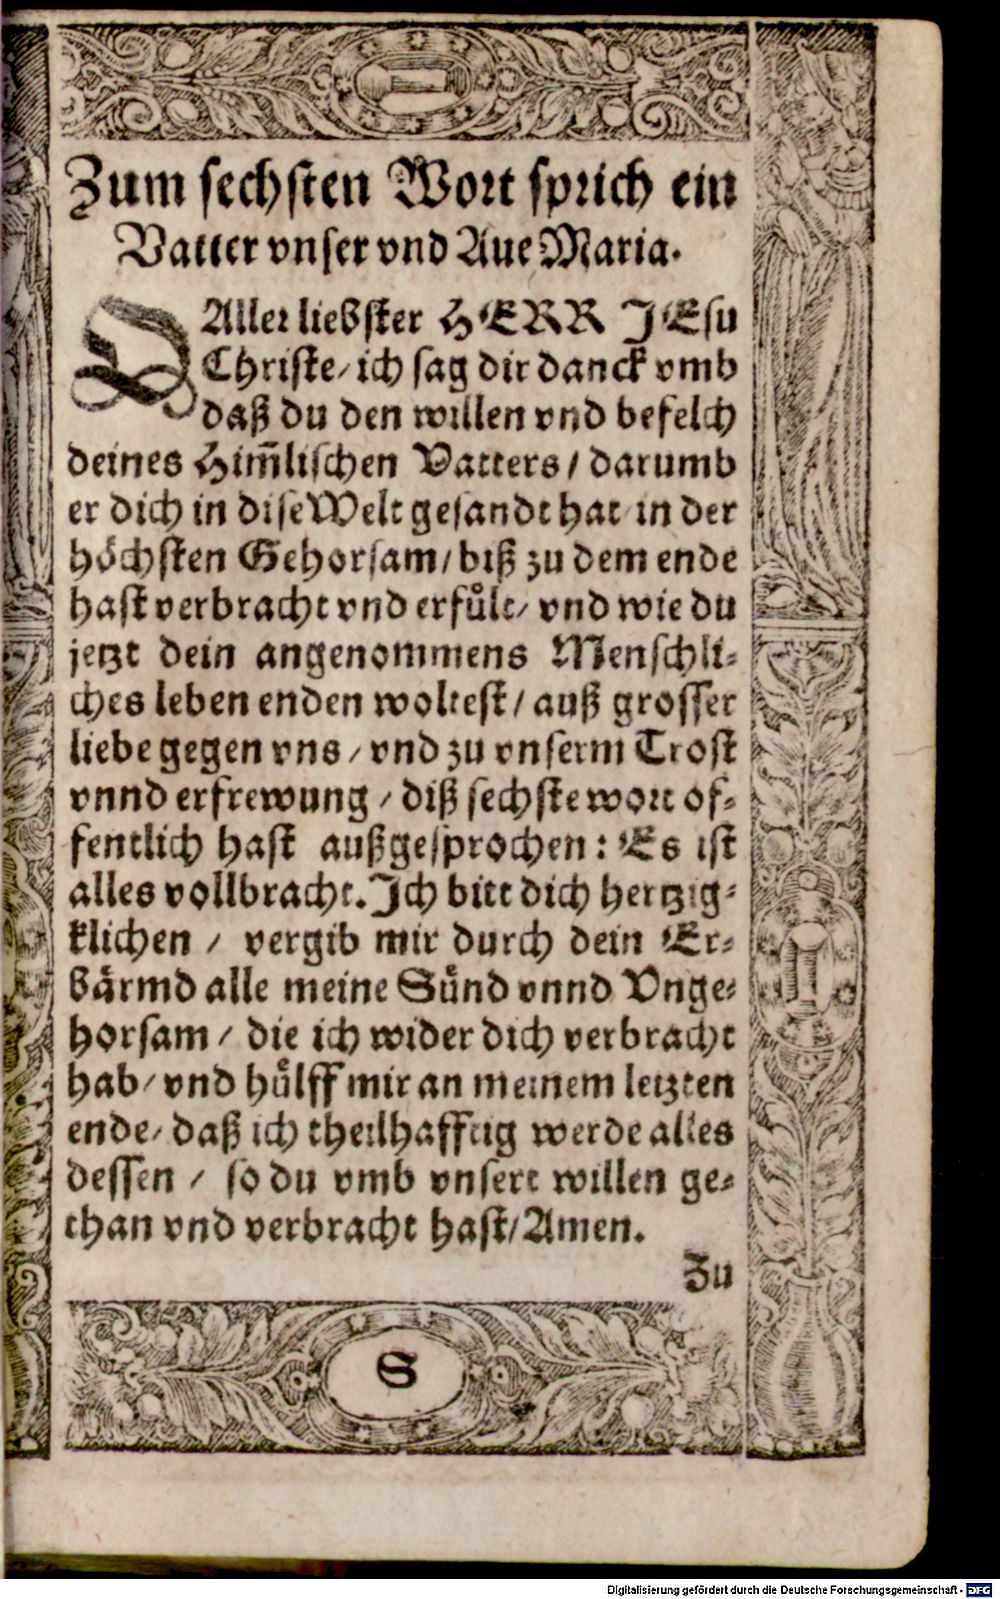 Zum sechsten Wort sprich ein
Vatter vnser vnd Aue Maria.
O Aller liebster HERR JEsu
Christe/ ich sag dir danck vmb
daß du den willen vnd befelch
deines Him̃lischen Vatters / darumb
er dich in dise Welt gesandt hat in der
höchsten Gehorsam / biß zu dem ende
hast verbracht vnd erfuͤlt/ vnd wie du
jetzt dein angenommens Menschli⸗
ches leben enden woltest / auß grosser
liebe gegen vns / vnd zu vnserm Trost
vnnd erfrewung / diß sechste wort of⸗
fentlich hast außgesprochen: Es ist
alles vollbracht. Ich bitt dich hertzig⸗
klichen / vergib mir durch dein Er⸗
bärmd alle meine Suͤnd vnnd Vnge⸗
horsam / die ich wider dich verbracht
hab/ vnd huͤlff mir an meinem letzten
ende/ daß ich theilhafftig werde alles
dessen / so du vmb vnsert willen ge⸗
than vnd verbracht hast/ Amen.
Zu
S
Digitalisierung gefördert durch die Deutsche Forschungsgemeinschaft - DFG